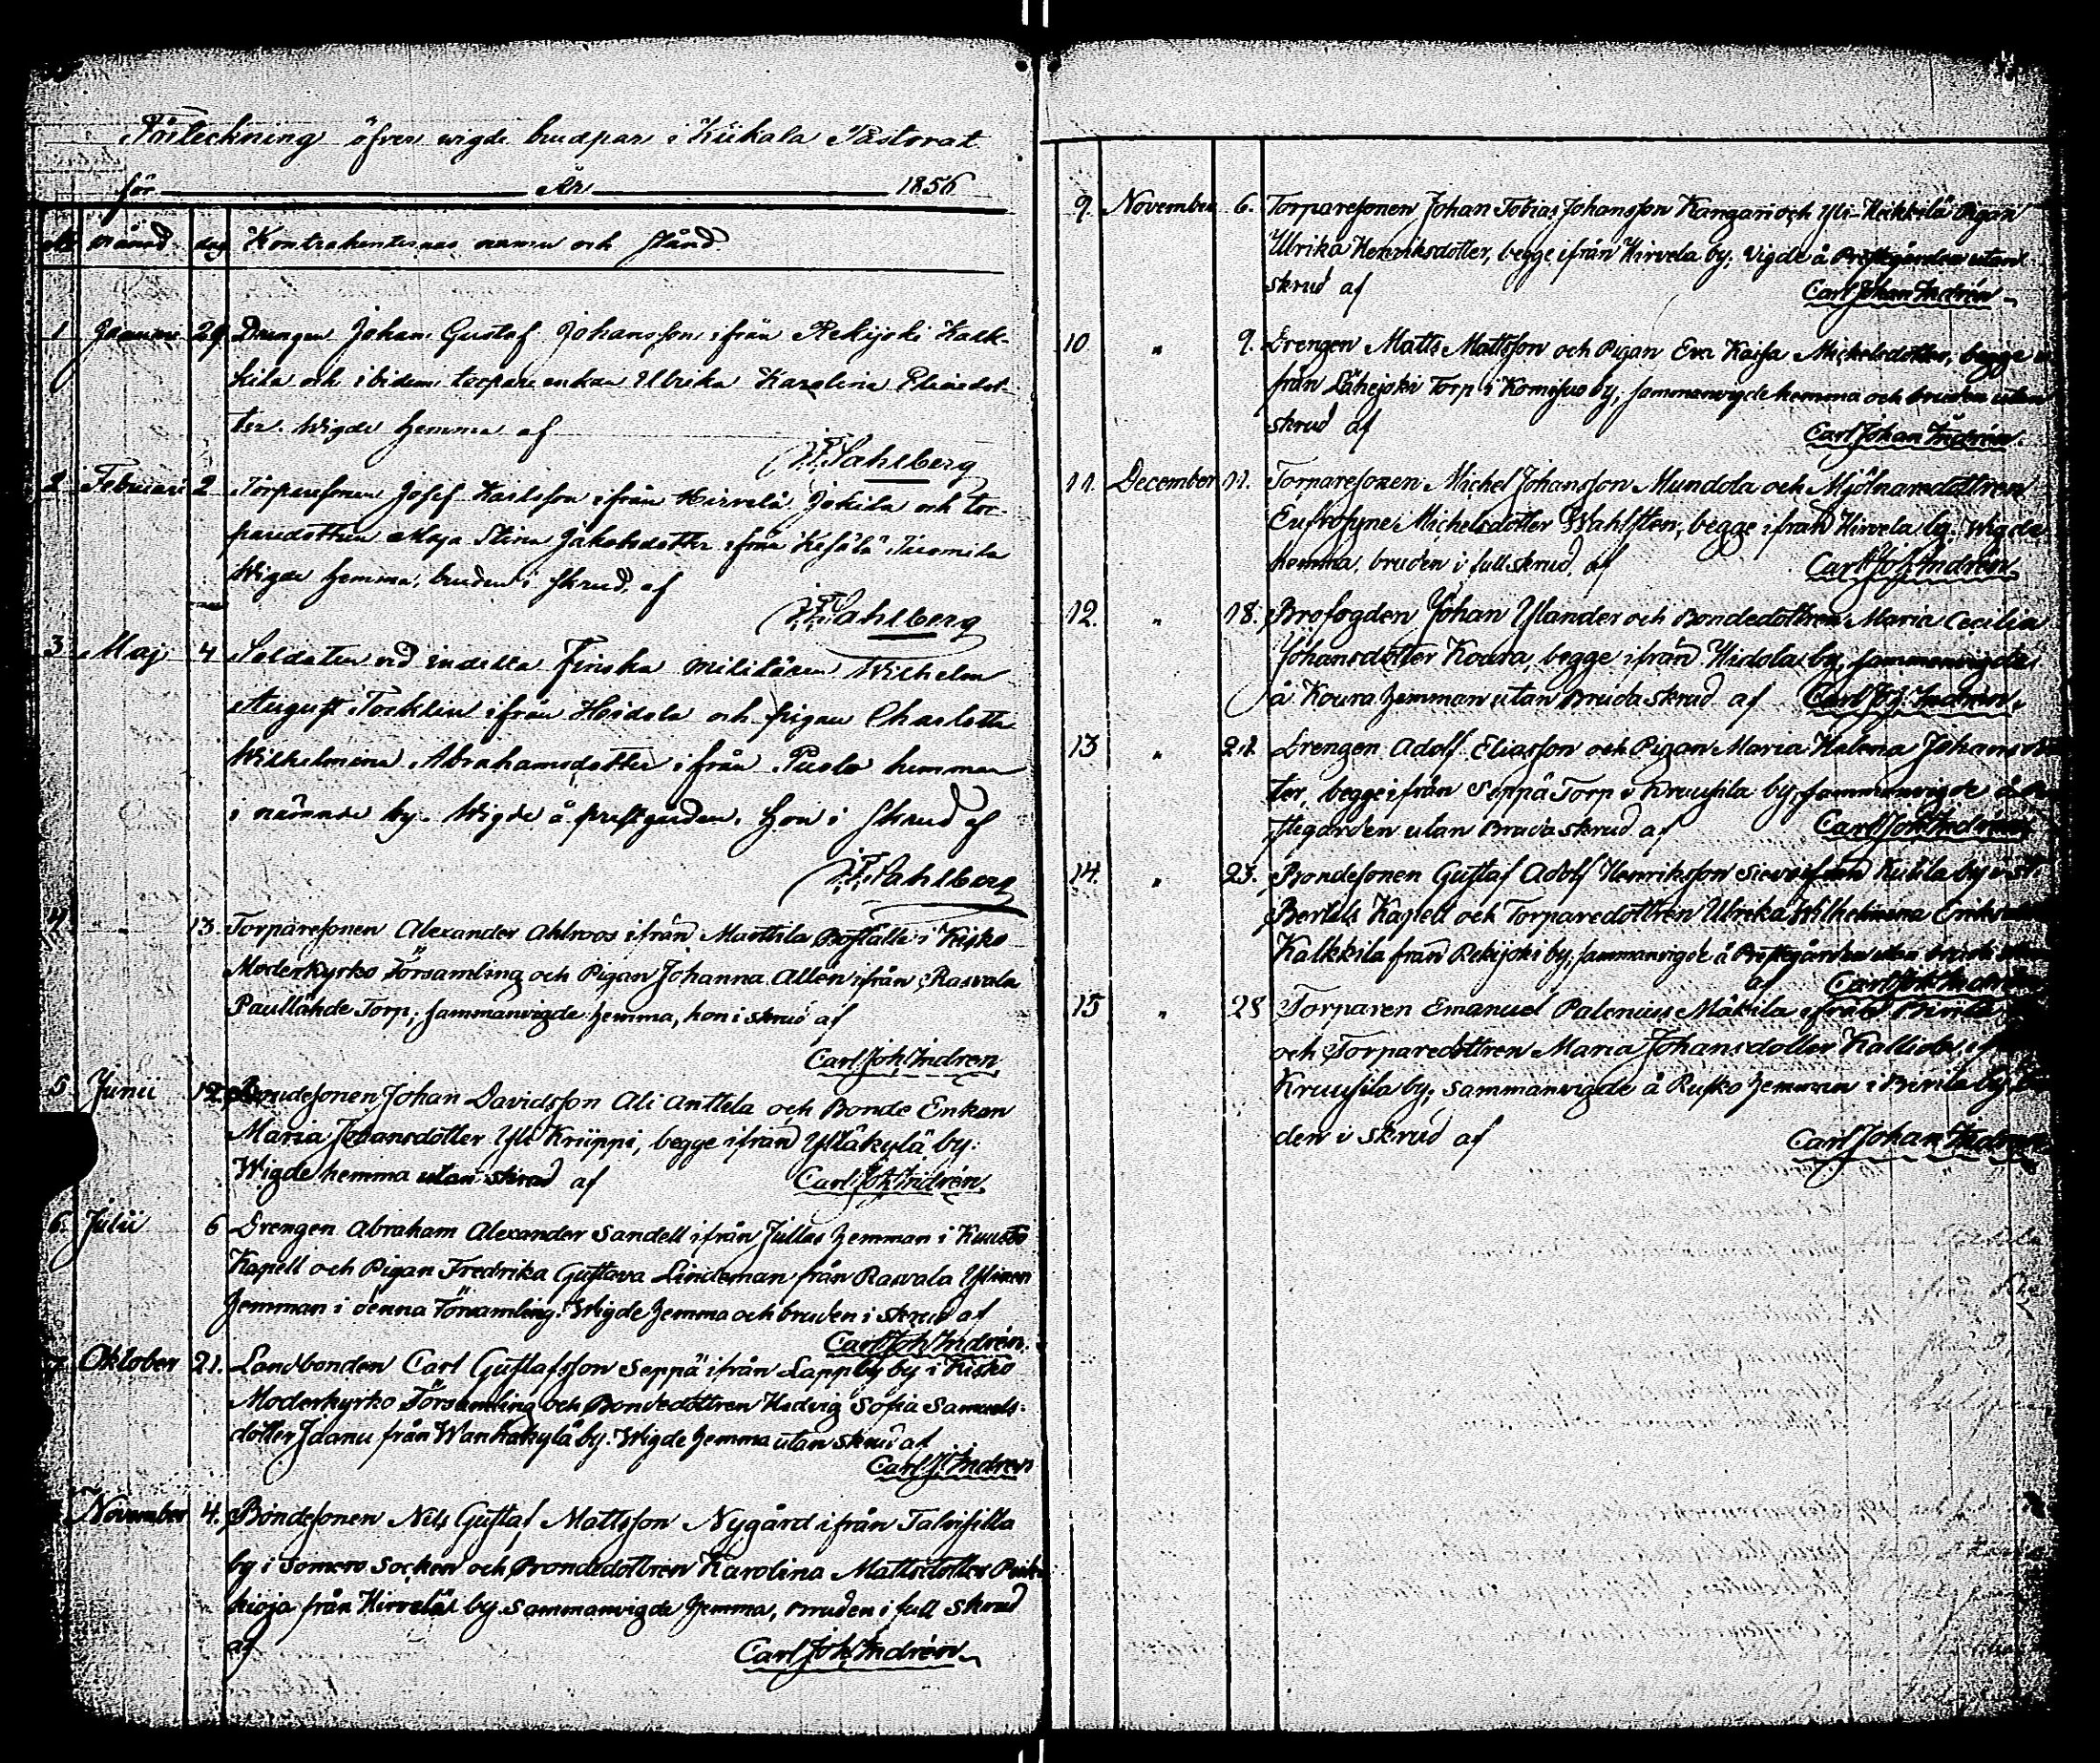 Förteckning öfver wigde brudpar i Kiikala Pastorat
för År 1856
månad dag Kontrahenternas namn och stånd
1 Januari 29. Drengen Johan Gustaf Johansson ifrån Rekijoki Kalk-
kila och ibidem torpare enkan Ulrika Karolina
ter. Wigde hemma af
Sahlberg
2 Februari 2 Torparesonen Josef Karlsson ifrån Hirvelä Jokila och tor-
paredottren Maja Stina Jakobsdotter ifrån Kesälä Tuomila
Wigde hemma, bruden i skrud, af
Sahlberg
3 Maj 4 Soldaten vid indelta Finska militären Wilhelm
August Torklin ifrån Hidola och pigan Charlotta
Wilhelmina Abrahamsdotter ifrån Puolo hemman
i nämnde by. Wigde å prestgården, hon i skrud af
Sahlberg
4 " 13. Torparesonen Alexander Ahlroos ifrån Marttila Boställe i Kisko
Moderkyrko Församling och Pigan Johanna Allén ifrån Rasvala
Paullähde Torp; sammanvigde hemma, hon i skrud af
Carl Joh. Indrén
5 Junii 12. Bondesonen Johan Davidsson Ali Anttila och Bonde Enkan
Maria Johansdotter Yli Kriippi, begge ifrån Yltäkylä by.
Wigde hemma utan skrud af Carl Joh. Indrén
6. Julii 6 Drengen Abraham Alexander Sandell ifrån Jullas hemman i Kuusto
Kapell och Pigan Fredrika Gustava Lindeman från Rasvala Ylinen
hemman i denna Församling. Wigde hemma och bruden i skrud af
Carl Joh. Indrén.
7 Oktober 21. Landbonden Carl Gustafsson Seppä ifrån Lappby by i Kisko
Moderkyrko Församling och Bondedottren Hedvig Sofia Samuels-
dotter Jdanu från Wanhakylä by. Wigde hemma utan skrud af
Carl J. Indrén
November 4. Bondesonen Nils Gustaf Mattsson Nygård ifrån Talvisilta
by i Somero Socken och Bondedottren Karolina Mattsdotter
kioja från Hirvelä by. Sammanvigde hemma, Bruden i full skrud
af Carl Joh. Indrén
9. November 6. Torparesonen Johan Tobias Johansson Kangari och Yli-Heikkilä Pigan
Ulrika Henriksdotter, begge ifrån Hirvela by; Vigde å Prestgården utan
skrud af Carl Johan Indrén
10 " 9. Drengen Matts Mattsson och Pigan Eva Kaisa Michelsdotter, begge
från Lähejoki Torp i Komisuo by, sammanvigde hemma och bruden utan
skrud af Carl Johan Indrén
11. December 11. Torparesonen Michel Johansson Mundola och Mjölnaredottren
Eufrosyne Michelsdotter Wahlsten, begge ifrån Hirvela by. Wigde
hemma, bruden i full skrud, af Carl Joh. Indrén
12. " 18. Brofogden Johan Ylander och Bondedottren Maria Cecilia
Johansdotter Koura, begge ifrån Hidola by, sammanvigde
å Koura hemman utan Brudaskrud af Carl Joh. Indrén.
13 " 21. Drengen Adolf Eliasson och Pigan Maria Helena Johansdot
ter, begge ifrån Seppä Torp i Kruusila by, sammanvigde å
stegården utan Brudaskrud af Carl Joh. Indrén
14. " 23. Bondesonen Gustaf Adolf Henriksson ifrån by i St.
Bertils Kapell och Torparedottren Ulrika Wilhelmina
Kalkkila från Rekijoki by; sammanvigde å Prestegården utan
af Carl Joh. Indrén
15 " 28 Torparen Emanuel Palenius Mäkila ifrån
och Torparedottren Maria Johansdotter
Kruusila by; sammanvigde å Rusko hemman i by
den i skrud af Carl Johan Indrén